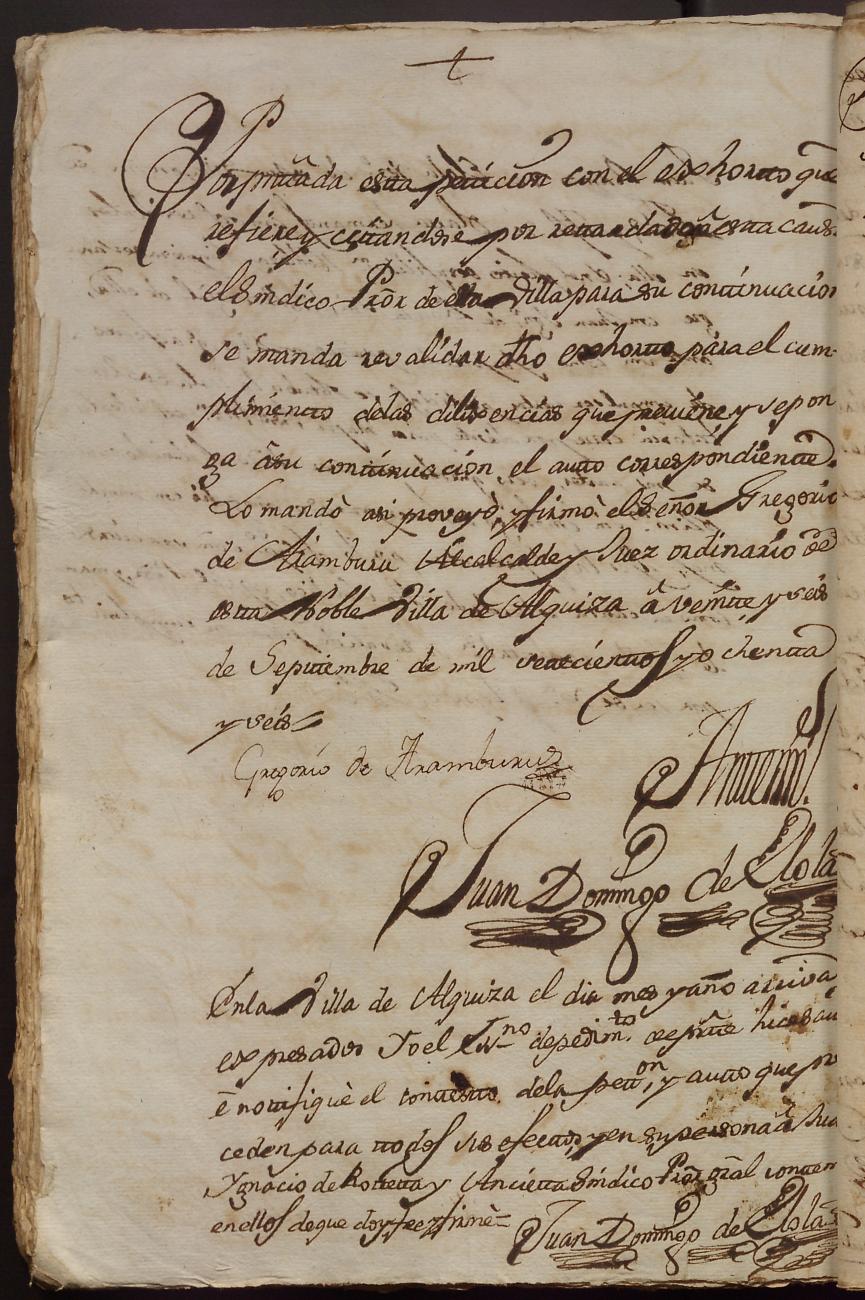 Por pñtada esta peticion con el exhorto qũe
refiere y citandose por retardado en esta caus
el Sindico Prõr de ella Villa para su continuacion
se manda revalidar dhõ exhorto, para el cum
plimiento delas dilixencias que previene, y se pon
ga â su continuacion, el auto correspondiente.
Lo mandò asi proveyò, y firmò el Señor Gregorio
de Aramburu Alcalcalde y Juez ordinario de
esta Noble Villa de Alquiza â veinte y seis
de Septiembre de mil setecientos, y ochenta
y seis
Gregorio de Aramburu
Antemi
Juan Domingo de Elola
Enla Villa de Alquiza el dia mes y año arriva
expresados Yo el Ess.no depedim.to hice sau
è notifiquè el contexto dela petton, y auto que pre
ceden para todos sus efectos, y en su persona â Jua
Ygnacio de Rotteta y Ancieta Sindico Prõr gral conten
en ellos de que doy fee y firmè=
Juan Domingo de Elola